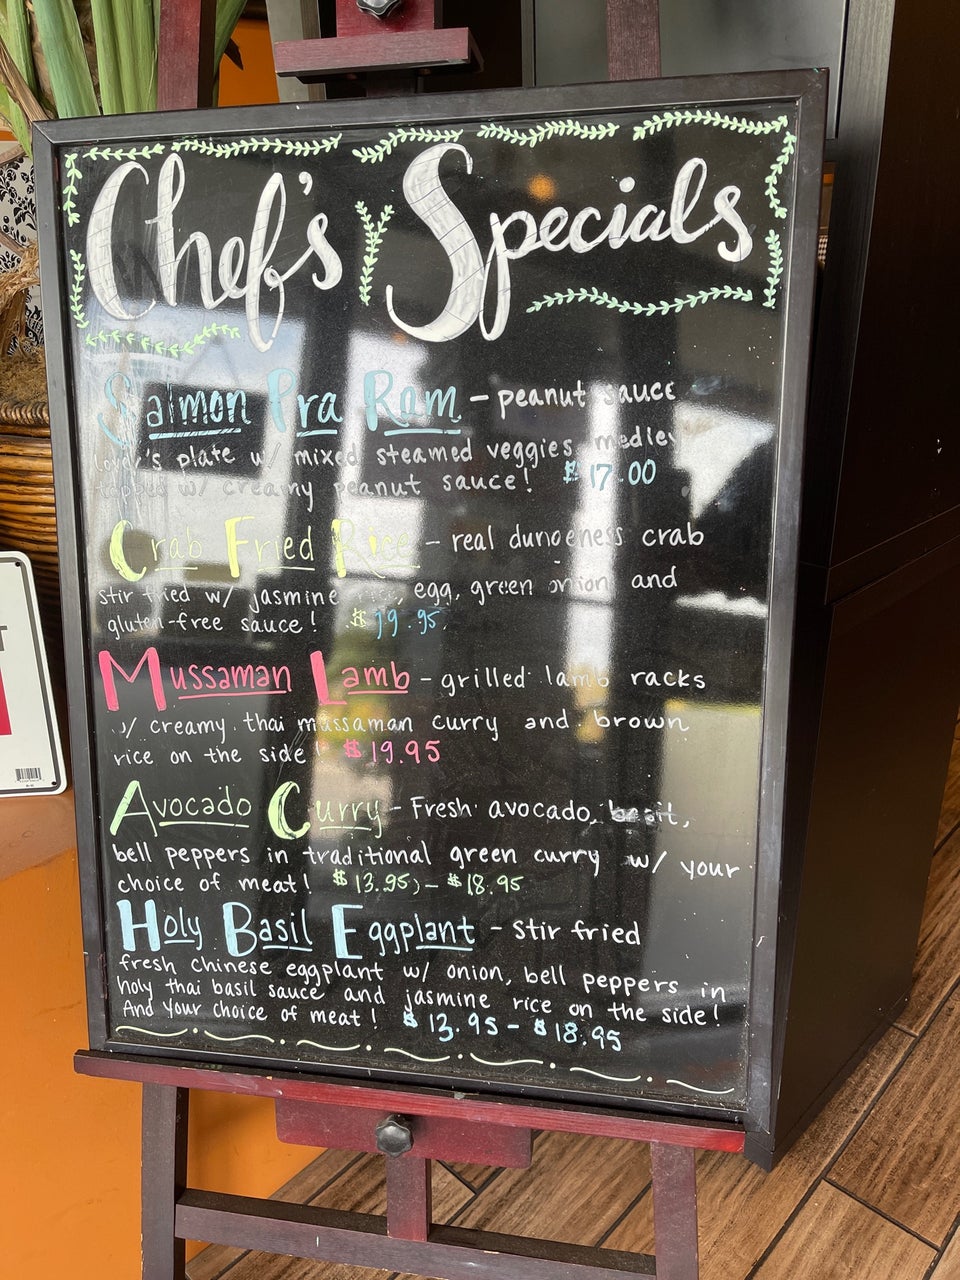 Chef's Specials
Salmon Pra Ram - peanut sauce
lover's plate w/ mixed steamed veggies medley
topped w/ creamy peanut sauce! $17.00
Crab Fried Rice - real dungeness crab
stir fried w/ jasmine rice, egg, green onion and
gluten-free sauce! $19.95
Mussaman Lamb - grilled lamb racks
w/ creamy thai mussaman curry and brown
rice on the side! $19.95
Avocado Curry - Fresh avocado,
bell peppers in traditional green curry w/ your
choice of meat! $13.95 - $18.95
Holy Basil Eggplant - Stir fried
fresh Chinese eggplant w/ onion, bell peppers in
holy thai basil sauce and jasmine rice on the side!
And your choice of meat! $13.95 - $18.95
T